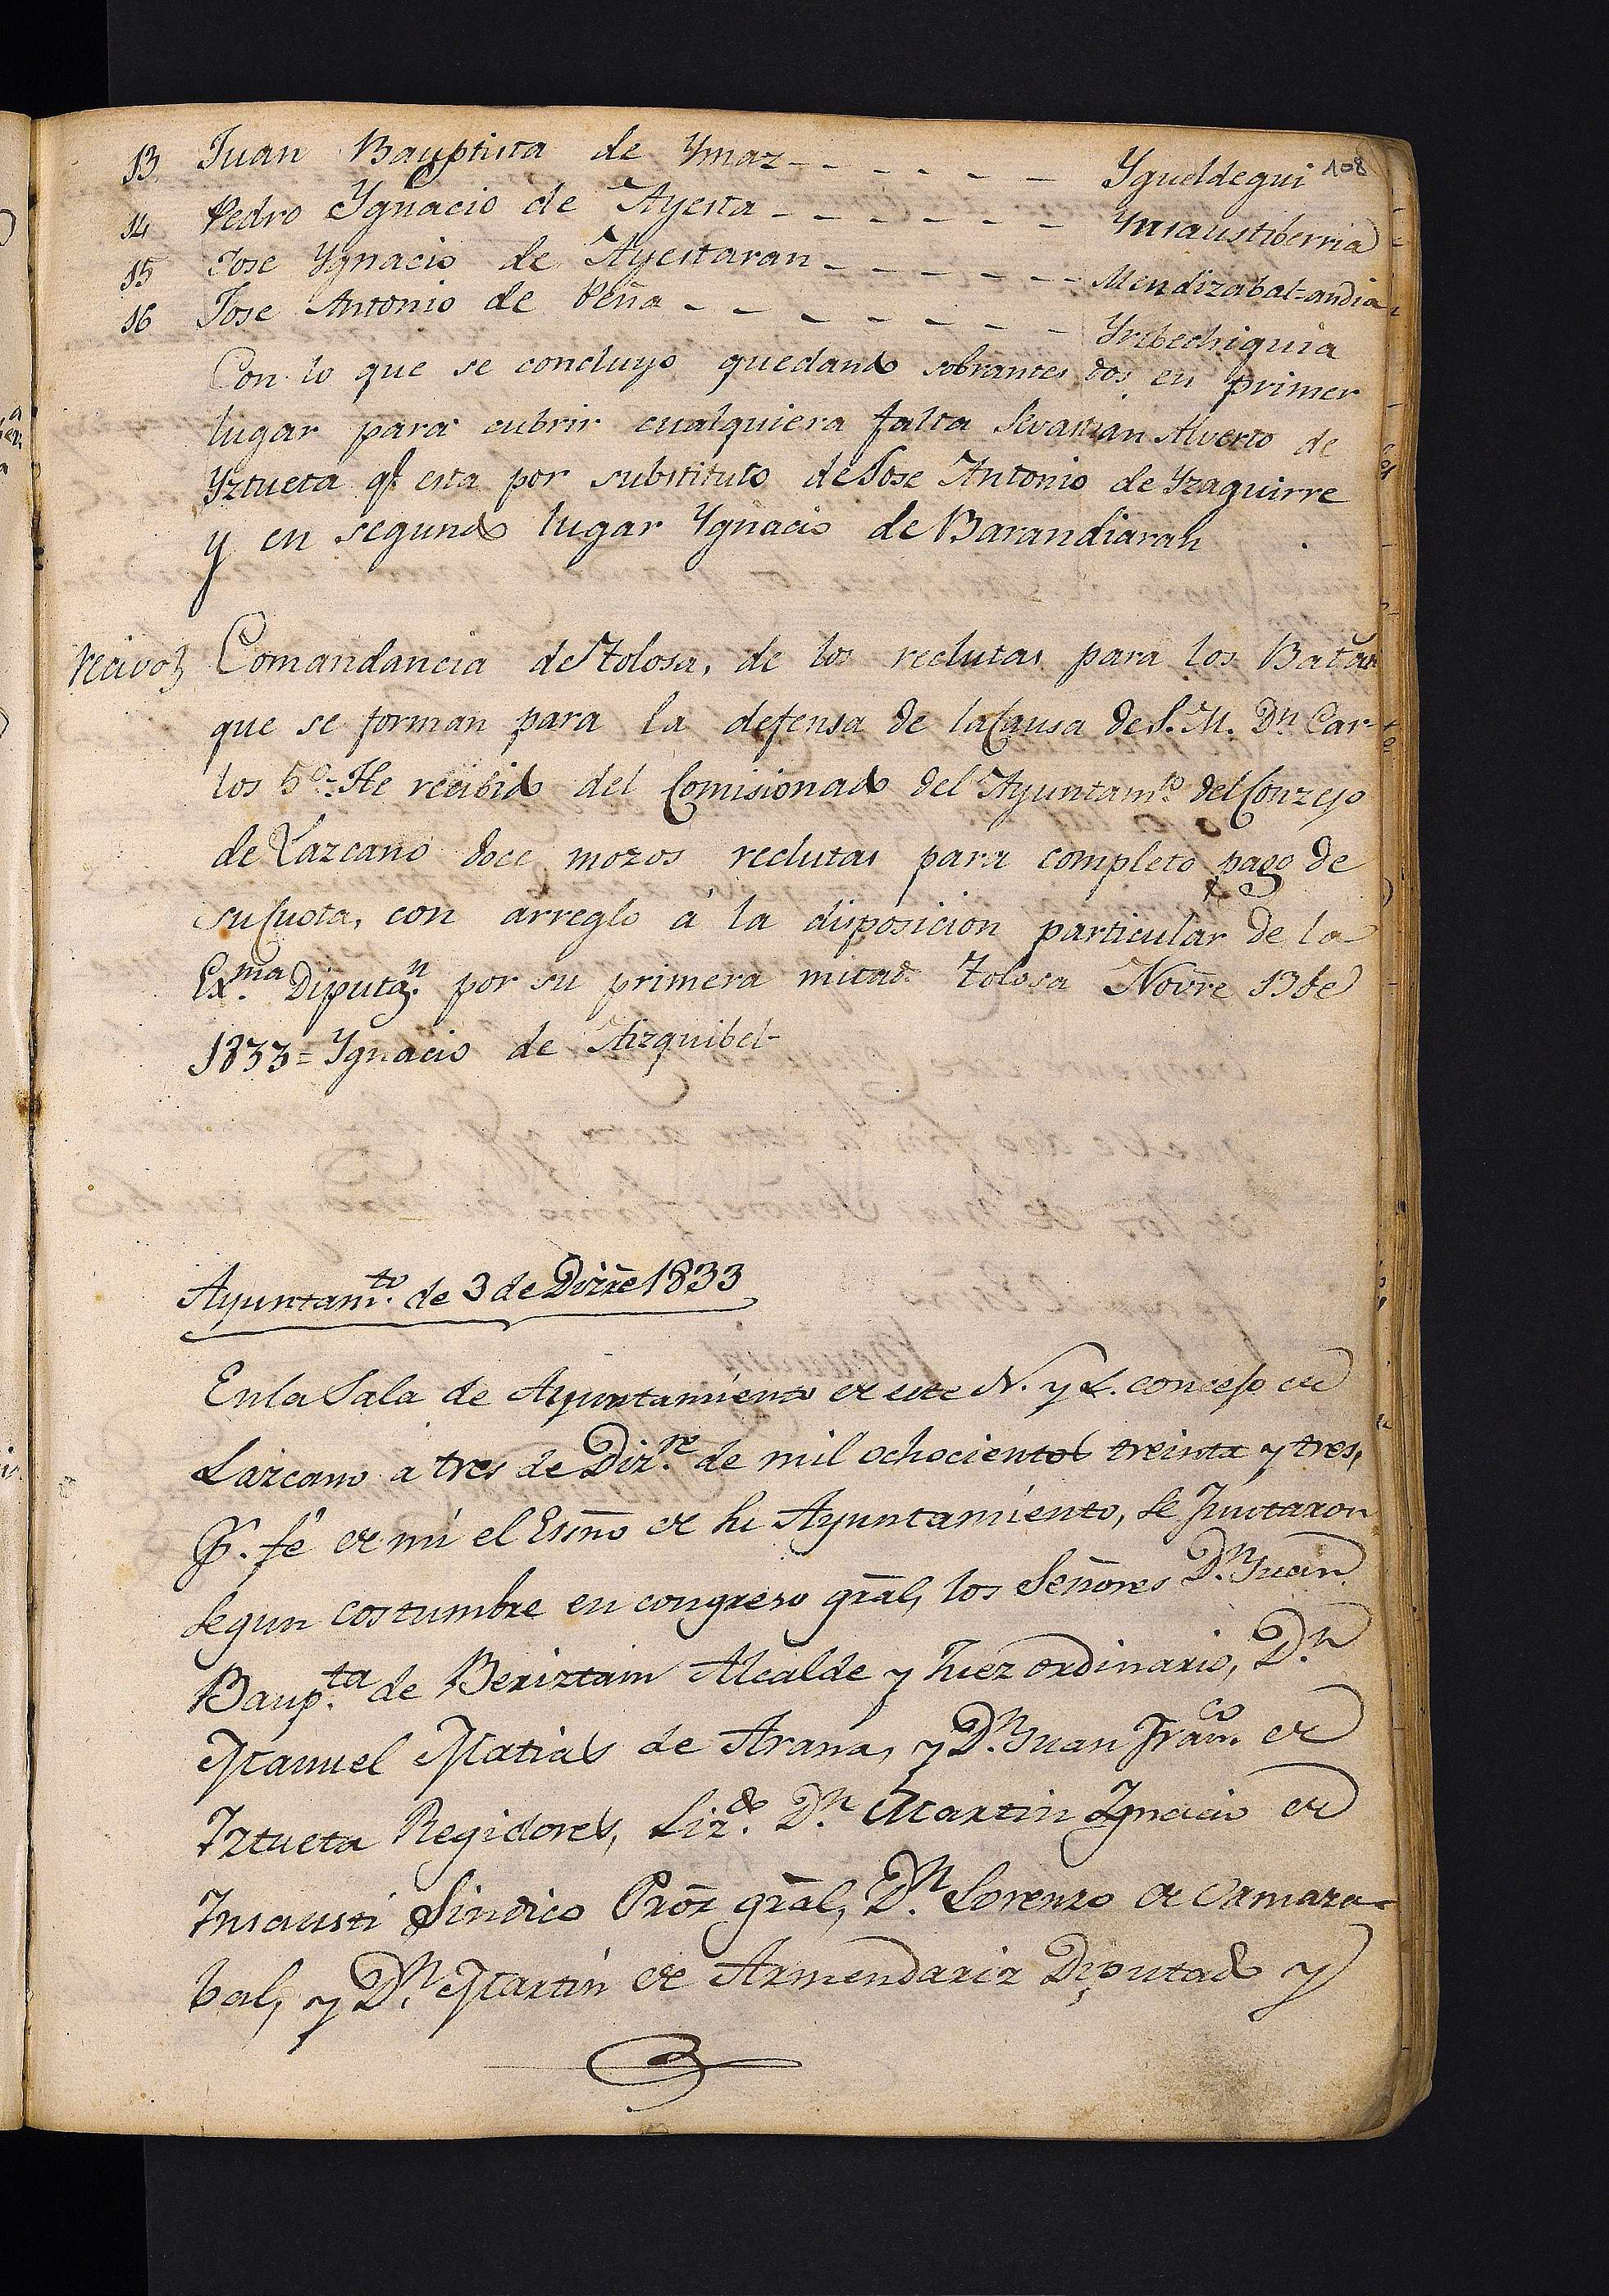 108
13 Juan Bauptista de Ymaz - - - - - - - Ygueldegui
14 Pedro Ygnacio de Ayesta - - - - - - - Ynsaustiberria
15 Jose Ygnacio de Ayestaran - - - - - - - Mendizabal-andia
16 Jose Antonio de Peña - - - - - - - - Yribechiquia
Con lo que se concluyo quedando sobrantes dos en primer
lugar para cubrir cualquiera falta Sevastian Alverto de
Yztueta q.e esta por substituto de Jose Antonio de Yzaguirre
y en segundo lugar Ygnacio de Barandiaran
recivos Comandancia de Tolosa, de los reclutas para los Bat.s
que se forman para la defensa de la Causa de S. M. Dn. Car-
los 5.o - He recibido del Comisionado del Ayuntam.to del Conzejo
de Lazcano doce mozos reclutas para completo pago de
su Cuota, con arreglo á la disposicion particular de la
Ex.ma Diputaz.n por su primera mitad. Tolosa Novre 13 de
1833 = Ygnacio de Aizquibel -
Ayuntam.to de 3 de Dizre 1833
En la Sala de Ayuntamiento de este N. y L. concejo de
Lazcano a tres de Diz.re de mil ochocientos treinta y tres,
P.r fé de mi el Esmo de su Ayuntamiento, se Juntaron
segun costumbre en congreso gral, los Señores D.n Juan
Baup.ta de Beriztain Alcalde y Juez ordinario, D.n
Manuel Matias de Arana, y D.n Juan Fran.co de
Iztueta Regidores, Liz.do D.n Martin Ignacio de
Insausti Sindico Pror gral, D.n Lorenzo de Camara-
bal, y D.n Martin de Armendariz Diputado y